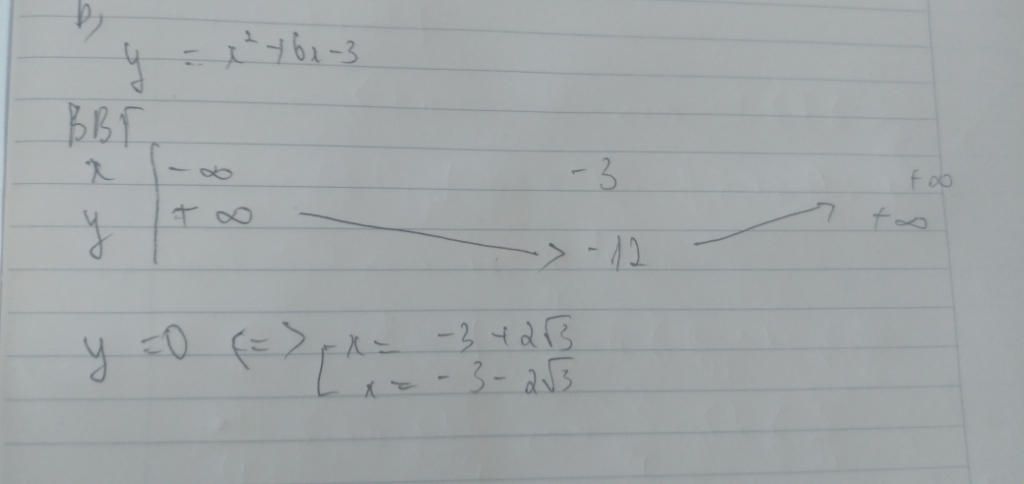 b,
y = x² + 6x - 3
BBT
x | -∞ -3 +∞
y | +∞ -12 +∞
y = 0 <=> [ x = -3 + 2√3
x = -3 - 2√3